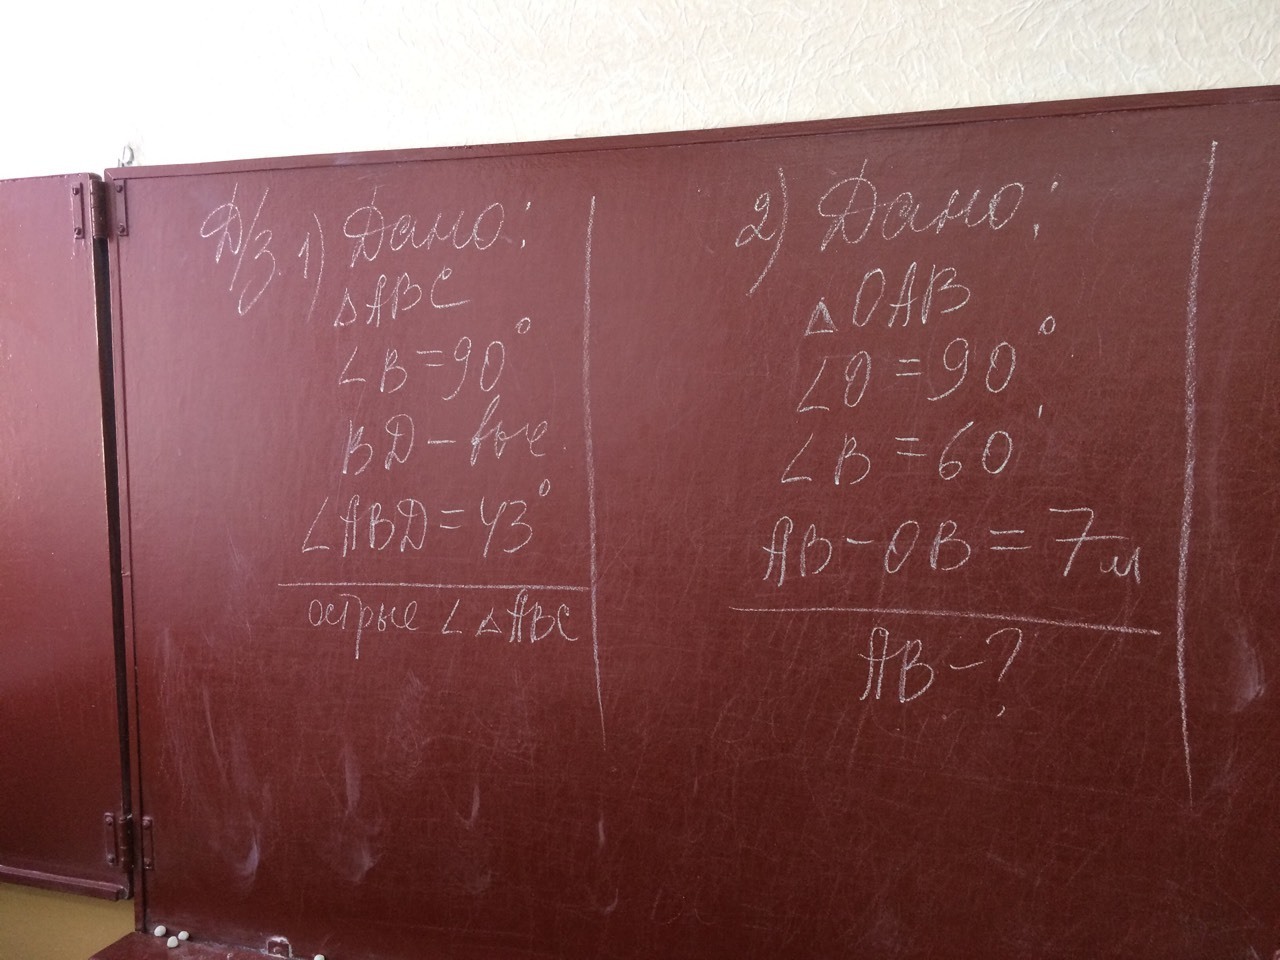 Д/з. 1) Дано:
△ABC
∠B=90°
BD – выс.
∠ABD=43°
острые ∠ △ABC
2) Дано:
△OAB
∠O=90°
∠B=60°
AB–OB=7м
AB–?